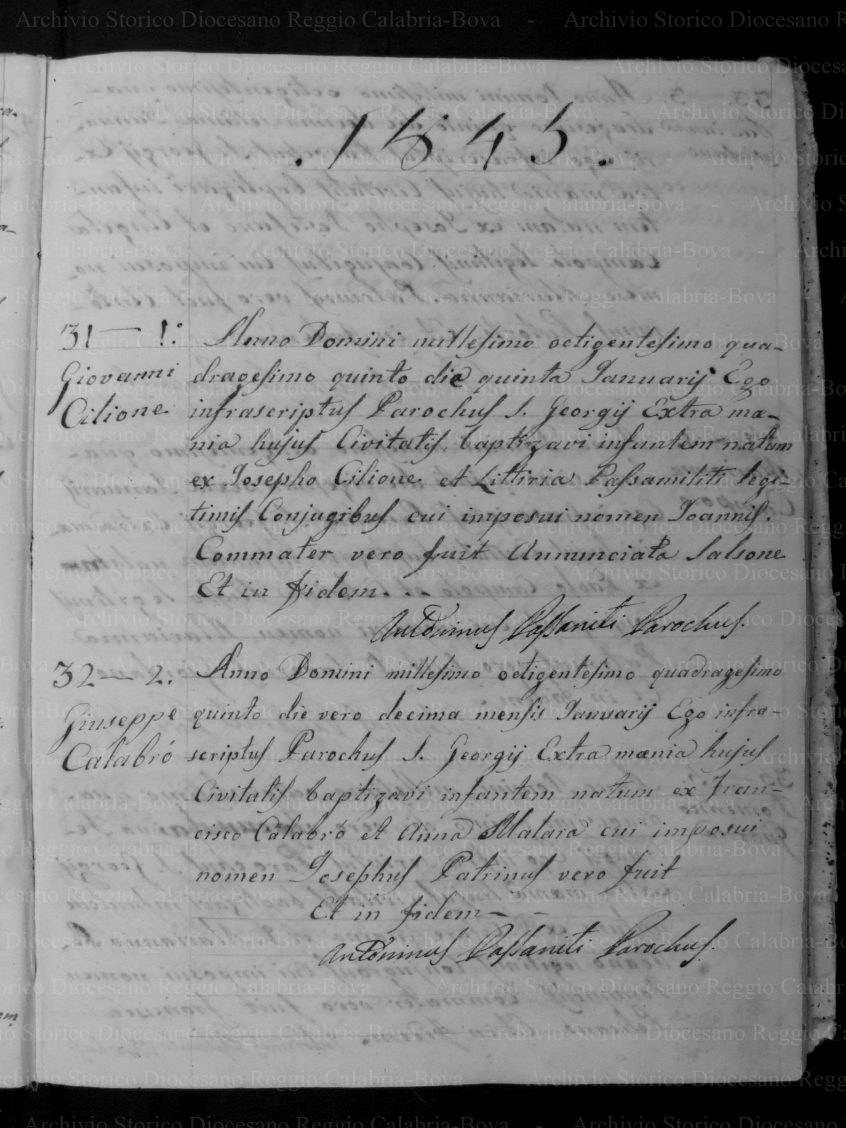 .1845.
31 — 1:
Giovanni
Cilione
Anno Domini millesimo octigentesimo qua-
dragesimo quinto die quinta Januarij Ego
infrascriptus Parochus S. Georgij Extra mœ-
nia hujus Civitatis baptizavi infantem natum
ex Josepho Cilione et Littiria Passamiliti legi-
timis Conjugibus cui imposui nomen Joannis.
Commater vero fuit Annunciata Salsone
Et in fidem. . -
Antoninus Passaniti Parochus.
32 — 2.
Giuseppe
Calabró
Anno Domini millesimo octigentesimo quadragesimo
quinto die vero decima mensis Januarij Ego infra-
scriptus Parochus S. Georgij Extra mœnia hujus
Civitatis baptizavi infantem natum ex Fran-
cisco Calabró et Anna Malara cui imposui
nomen Josephus Patrinus vero fuit
Et in fidem - -
Antoninus Passaniti Parochus.
Archivio Storico Diocesano Reggio Calabria-Bova